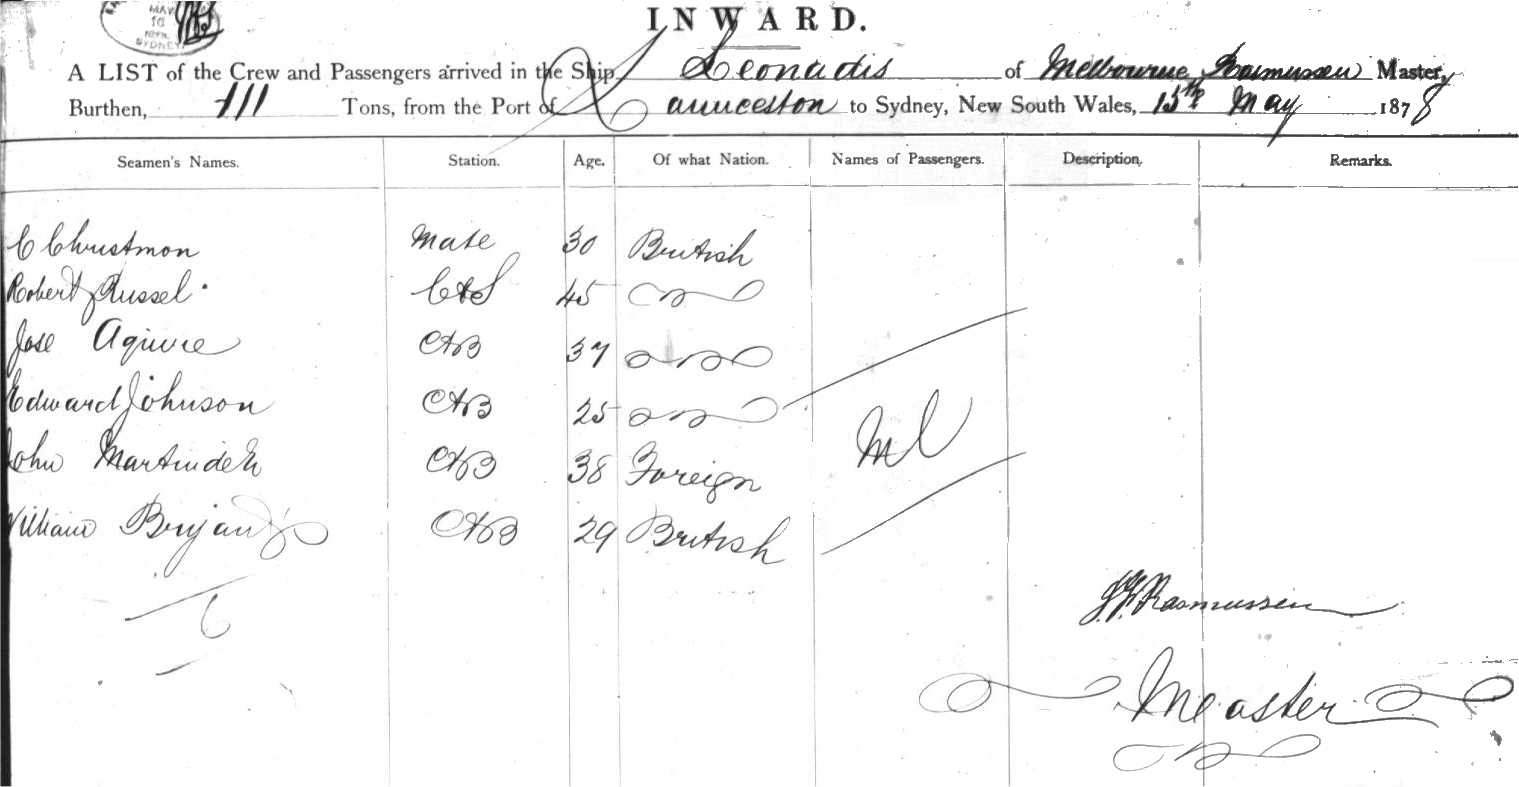 MAY
16
SYDNEY
INWARD.
A LIST of the Crew and Passengers arrived in the Ship Leonadis of Melbourne, Rasmussen Master,
Burthen, 111 Tons, from the Port of Launceston to Sydney, New South Wales, 15th May 1878
Seamen's Names. Station. Age. Of what Nation. Names of Passengers. Description. Remarks.
C Christmon Mate 30 British
Robert Russel C&S 45
Jose Aguirre AB 37
Edward Johnson AB 25
John AB 38 Foreign
William AB 29 British
J. F. Rasmussen
Master